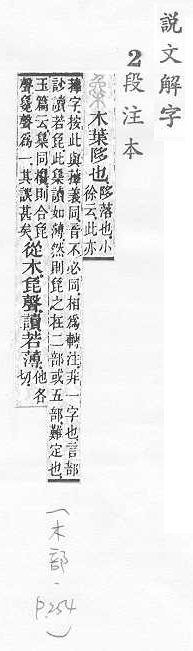 說文解字
2段注本
木葉陊也。陊落也。小
徐云此亦
蘀字按此與蘀義同音不必同相爲轉注非一字也言部
訬讀若㲋此㲋讀如薄然則㲋之在二部或五部難定也
玉篇云 同 則合㲋
聲毚聲爲一其誤甚矣
從木㲋聲。讀若薄。他各
切
(木部.
p.254)